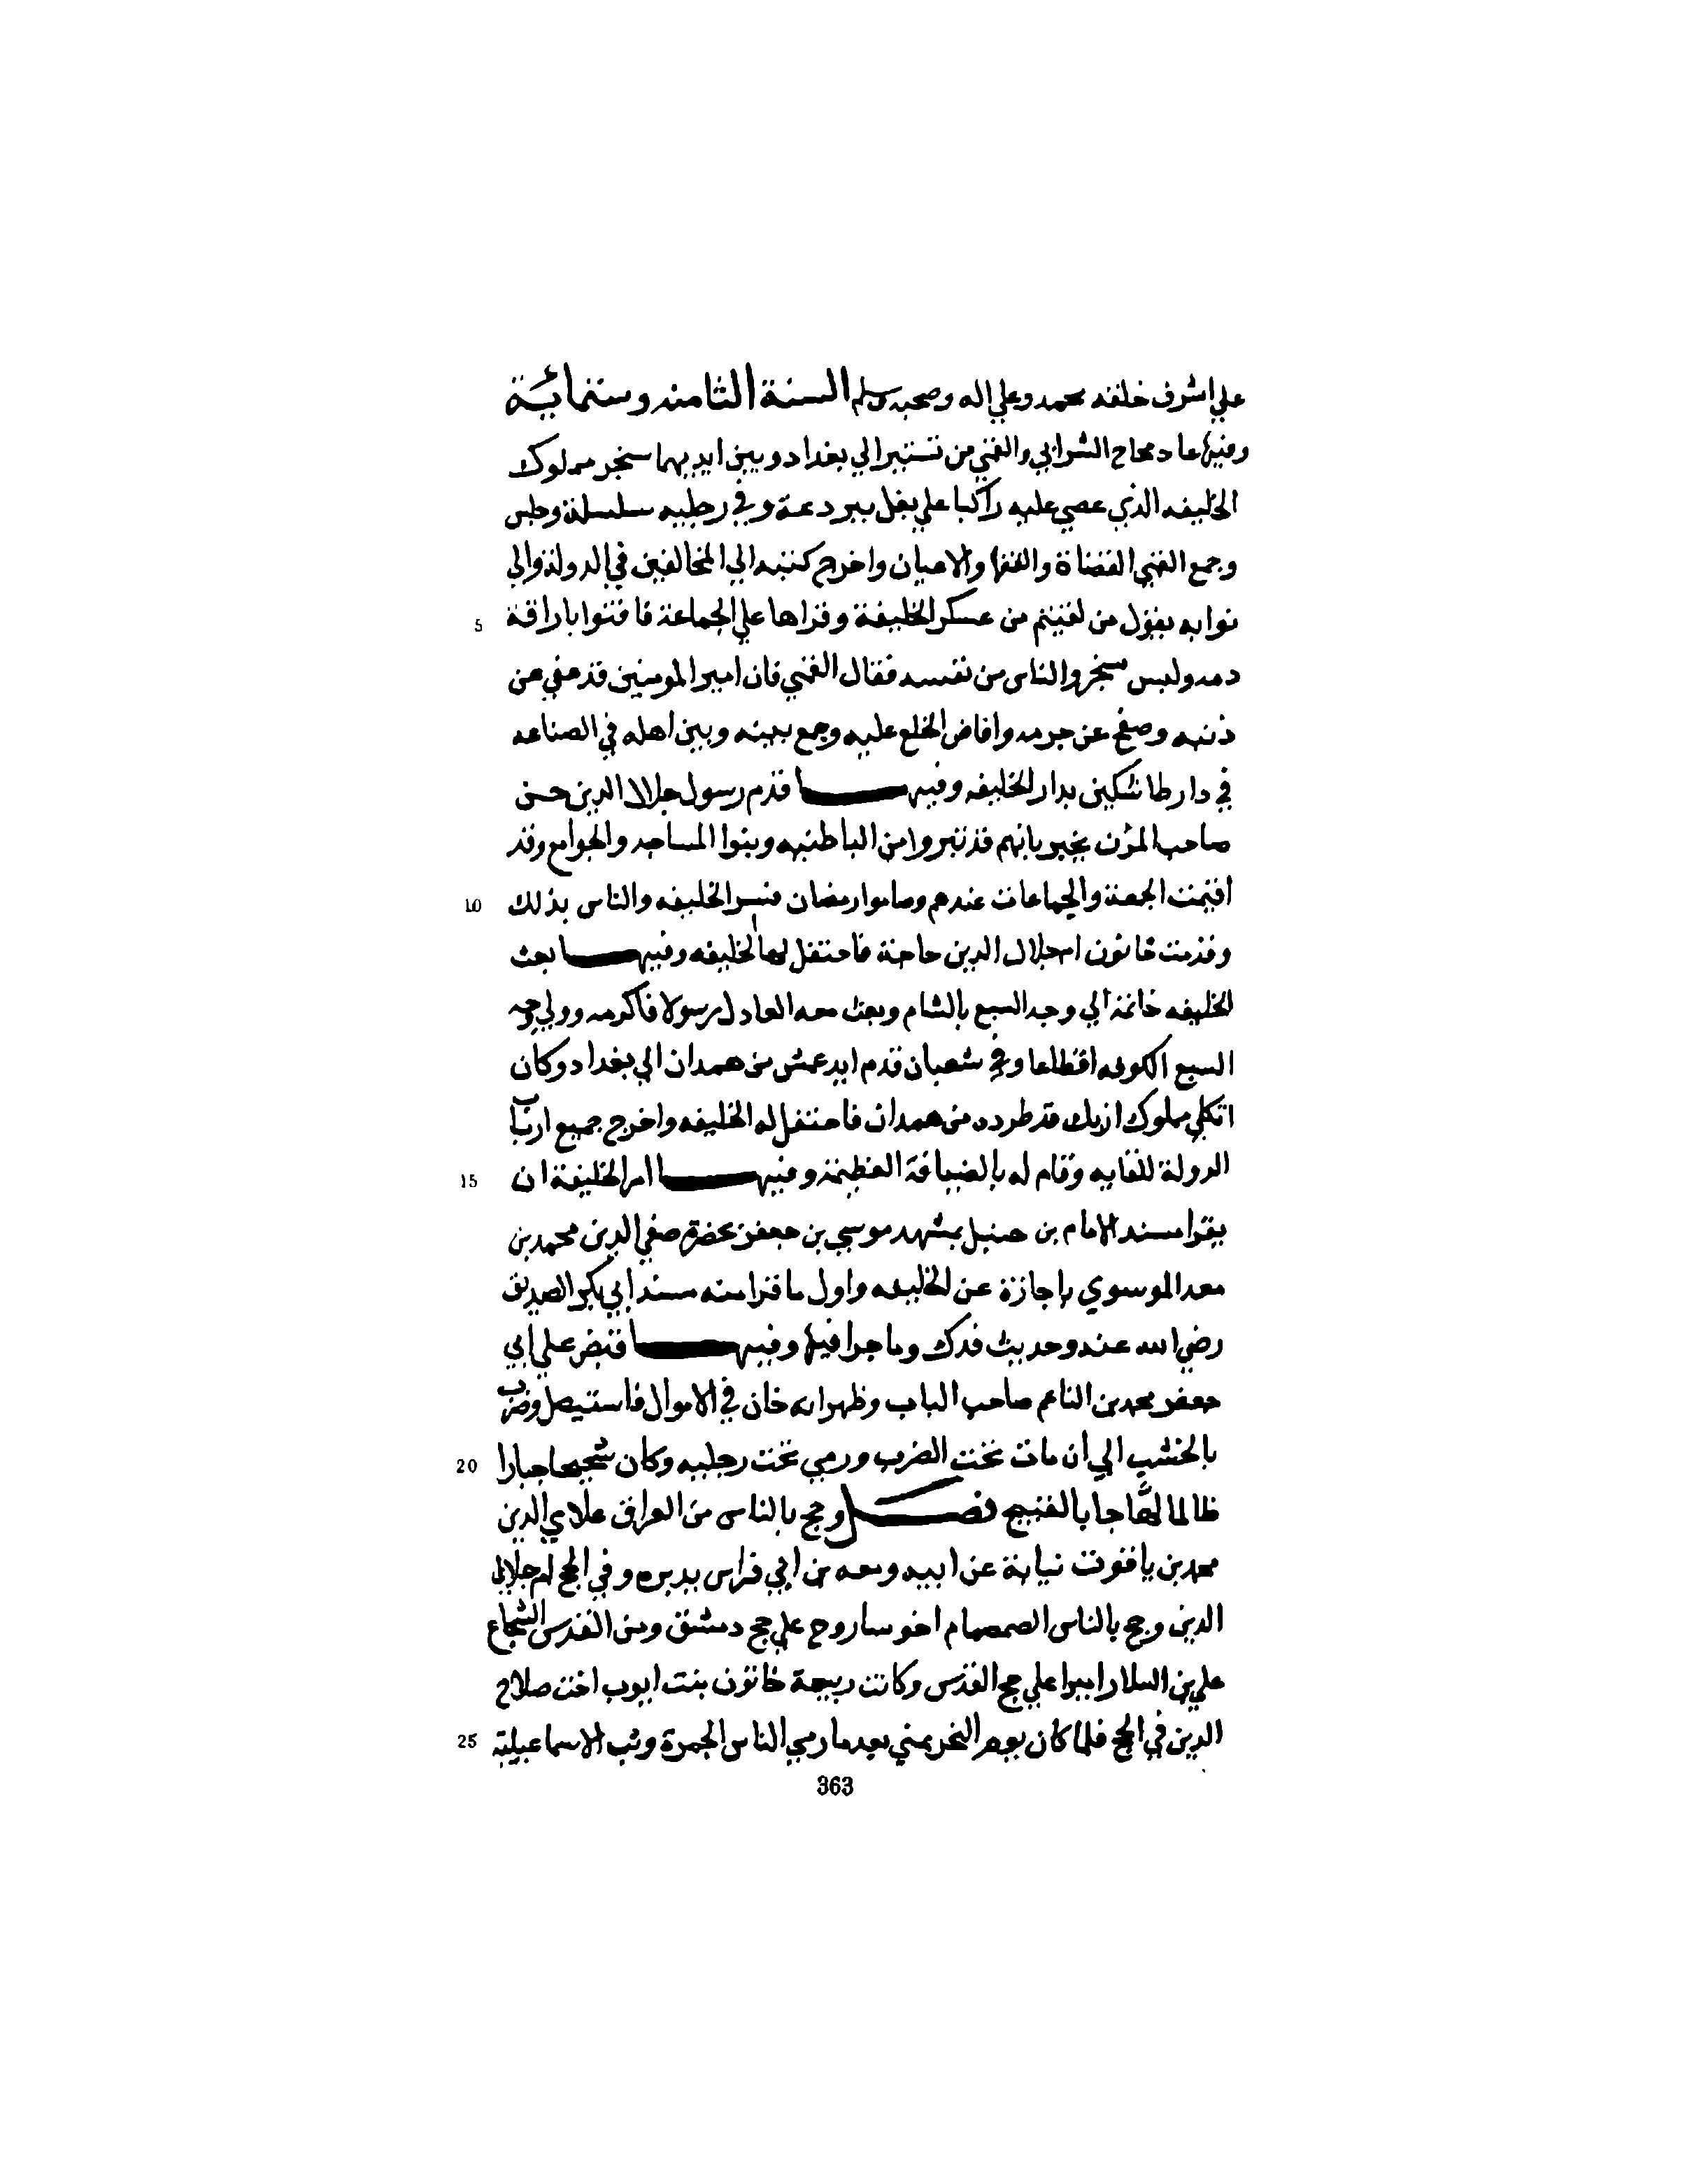 علي اشرف خلقه محمد وعلي اله وصحبه وسلم السنة الثامنه وستمائة
وفيها عاد محاح الشرابي والقمي من تستر الي بغداد وبين ايديهما سنجر مملوك
الخليفه الذي عصي عليه راكبا علي بغل ببردعة وفي رجليه سلسلة وجلس
وجمع القمي القضاة والفقها والاعيان واخرج كتبه الي المخالفين في الدولة والي
نوابه يقول من لقيتم من عسكر الخليفة وقراها علي الجماعة فافتوا باراقة
5
دمه وليس سنجر والناس من نفسه فقال القمي فان امير المومنين قد عفي عن
ذنبه وصفح عن جرمه وافاض الخلع عليه وجمع بينه وبين اهله في الصناعه
في دار طاشتكين بدار الخليفه وفيها قدم رسول جلال الدين حسن
صاحب المزت يخبر بانهم قد تبروا من الباطنيه وبنوا المساجد والجوامع وقد
اقيمت الجمعة والجماعات عندهم وصاموا رمضان فسر الخليفه والناس بذلك
10
وقدمت خاتون ام جلال الدين حاجة فاحتفل لها الخليفه وفيها بعث
الخليفه خاتمة الي وجه السبع بالشام وبعث معه العادل رسولا فاكرمه وولي وجه
السبع الكوفه اقطاعا وفي شعبان قدم ايدغمش من همدان الي بغداد وكان
اتكلي مملوك ازبك قد طرده من همدان فاحتفل له الخليفه واخرج جميع ارباب
الدولة للقايه وقام له بالضيافة العظيمة وفيها امر الخليفة ان
15
يقرا مسند الامام بن حنبل بمشهد موسي بن جعفر بحضرة صفي الدين محمد بن
معد الموسوي باجازة عن الخليفه واول ما قرا منه مسند ابي بكر الصديق
رضي الله عنه وحديث فدك وما جرا فيها وفيها قبض علي ابي
جعفر محمد بن الناعم صاحب الباب وظهر انه خان في الاموال فاستيصل وضرب
بالخشب الي ان مات تحت الضرب ورمي تحت رجليه وكان شجعا جبارا
20
ظالما لها جابا لقبيح فصل وحج بالناس من العراق علاي الدين
محمد بن ياقوت نيابة عن ابيه ومعه بن ابي فراس يدبره وفي الحج ام جلال
الدين وحج بالناس الصمصام اخو ساروخ علي حج دمشق ومن القدس الشجاع
علي بن السلار اميرا علي حج القدس وكانت ربيعة خاتون بنت ايوب اخت صلاح
الدين في الحج فلما كان يوم النحر بمني بعد ما رمي الناس الجمرة وثب الاسماعيلية
25
363